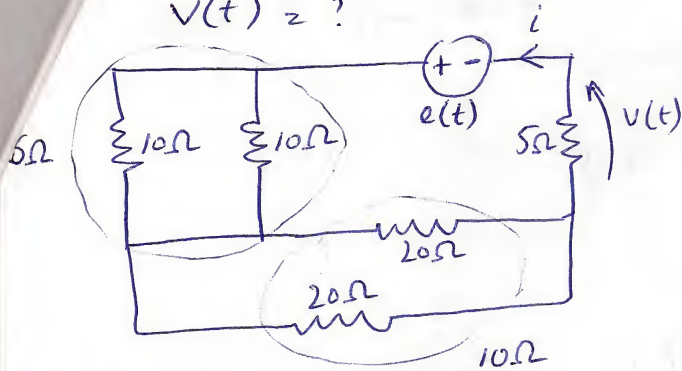 V(t) = ?
i
+ -
e(t)
V(t)
5Ω
10Ω
10Ω
5Ω
20Ω
20Ω
10Ω